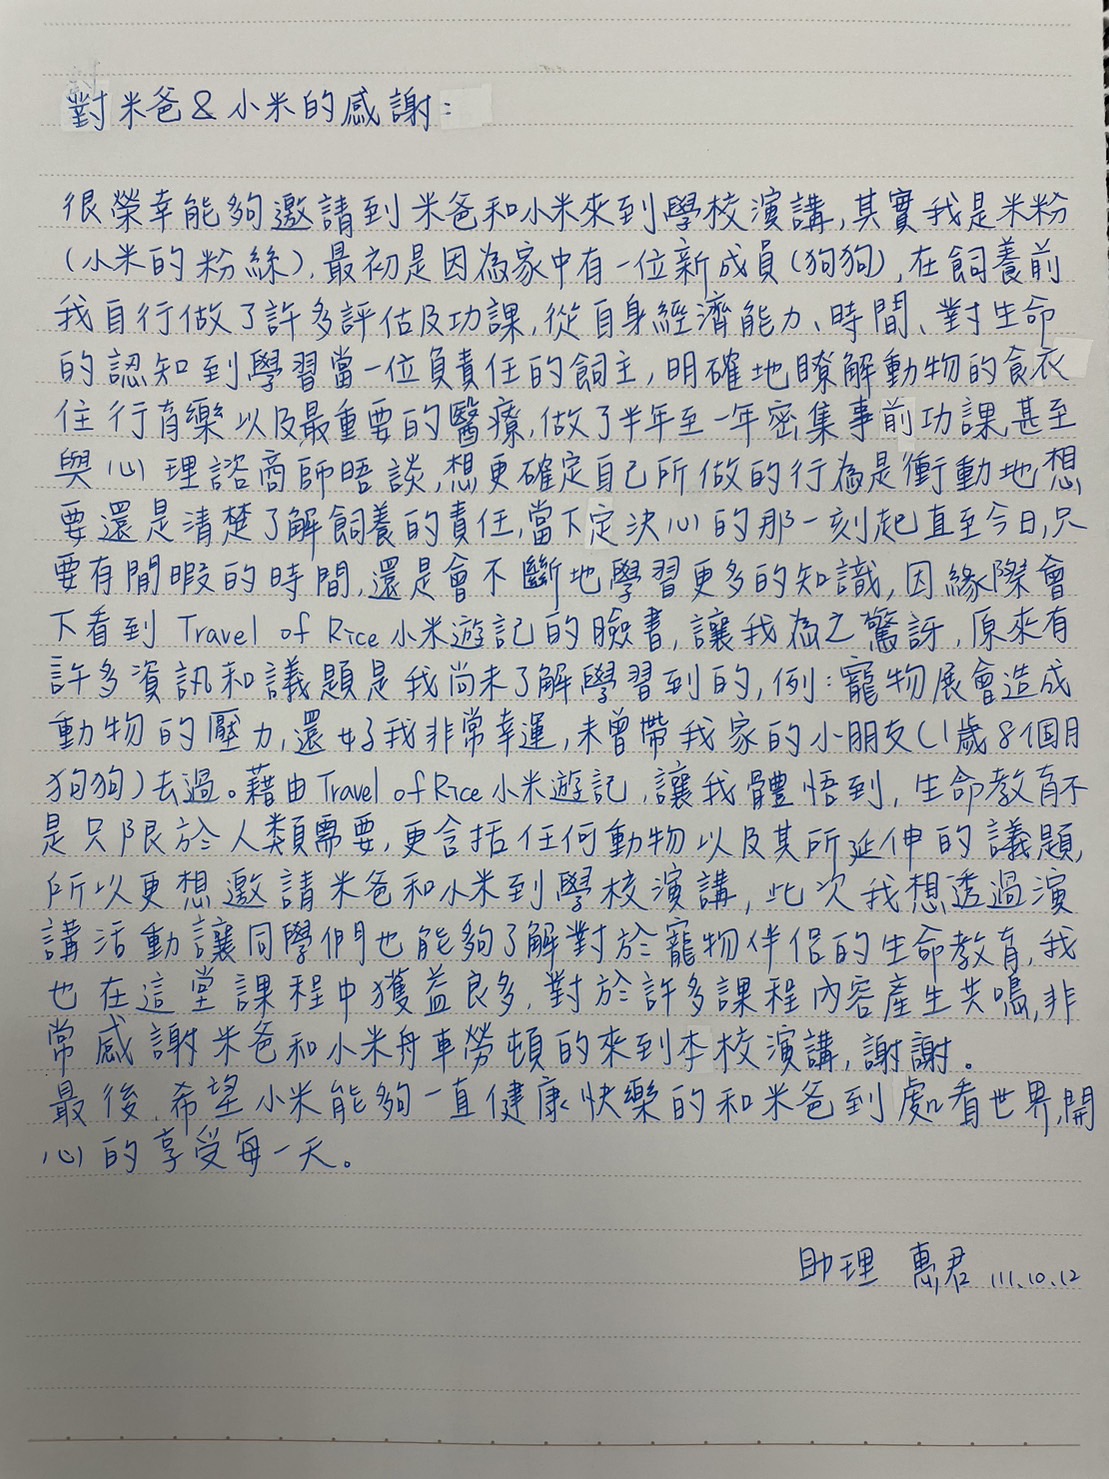 對米爸&小米的感謝：
很榮幸能夠邀請到米爸和小米來到學校演講，其實我是米粉
(小米的粉絲)，最初是因為家中有一位新成員(狗狗)，在飼養前
我自行做了許多評估及功課，從自身經濟能力、時間、對生命
的認知到學習當一位負責任的飼主，明確地瞭解動物的食衣
住行育樂以及最重要的醫療，做了半年至一年密集事前功課，甚至
與心理諮商師晤談，想更確定自己所做的行為是衝動地想
要還是清楚了解飼養的責任，當下定決心的那一刻起直至今日，只
要有閒暇的時間，還是會不斷地學習更多的知識，因緣際會
下看到 Travel of Rice 小米遊記的臉書，讓我為之驚訝，原來有
許多資訊和議題是我尚未了解學習到的，例：寵物展會造成
動物的壓力，還好我非常幸運，未曾帶我家的小朋友(1歲8個月
狗狗)去過。藉由Travel of Rice 小米遊記，讓我體悟到，生命教育不
是只限於人類需要，更含括任何動物以及其所延伸的議題，
所以更想邀請米爸和小米到學校演講，此次我想透過演
講活動讓同學們也能夠了解對於寵物伴侶的生命教育，我
也在這堂課程中獲益良多，對於許多課程內容產生共鳴，非
常感謝米爸和小米舟車勞頓的來到本校演講，謝謝。
最後，希望小米能夠一直健康快樂的和米爸到處看世界，開
心的享受每一天。
助理 惠君 111.10.12